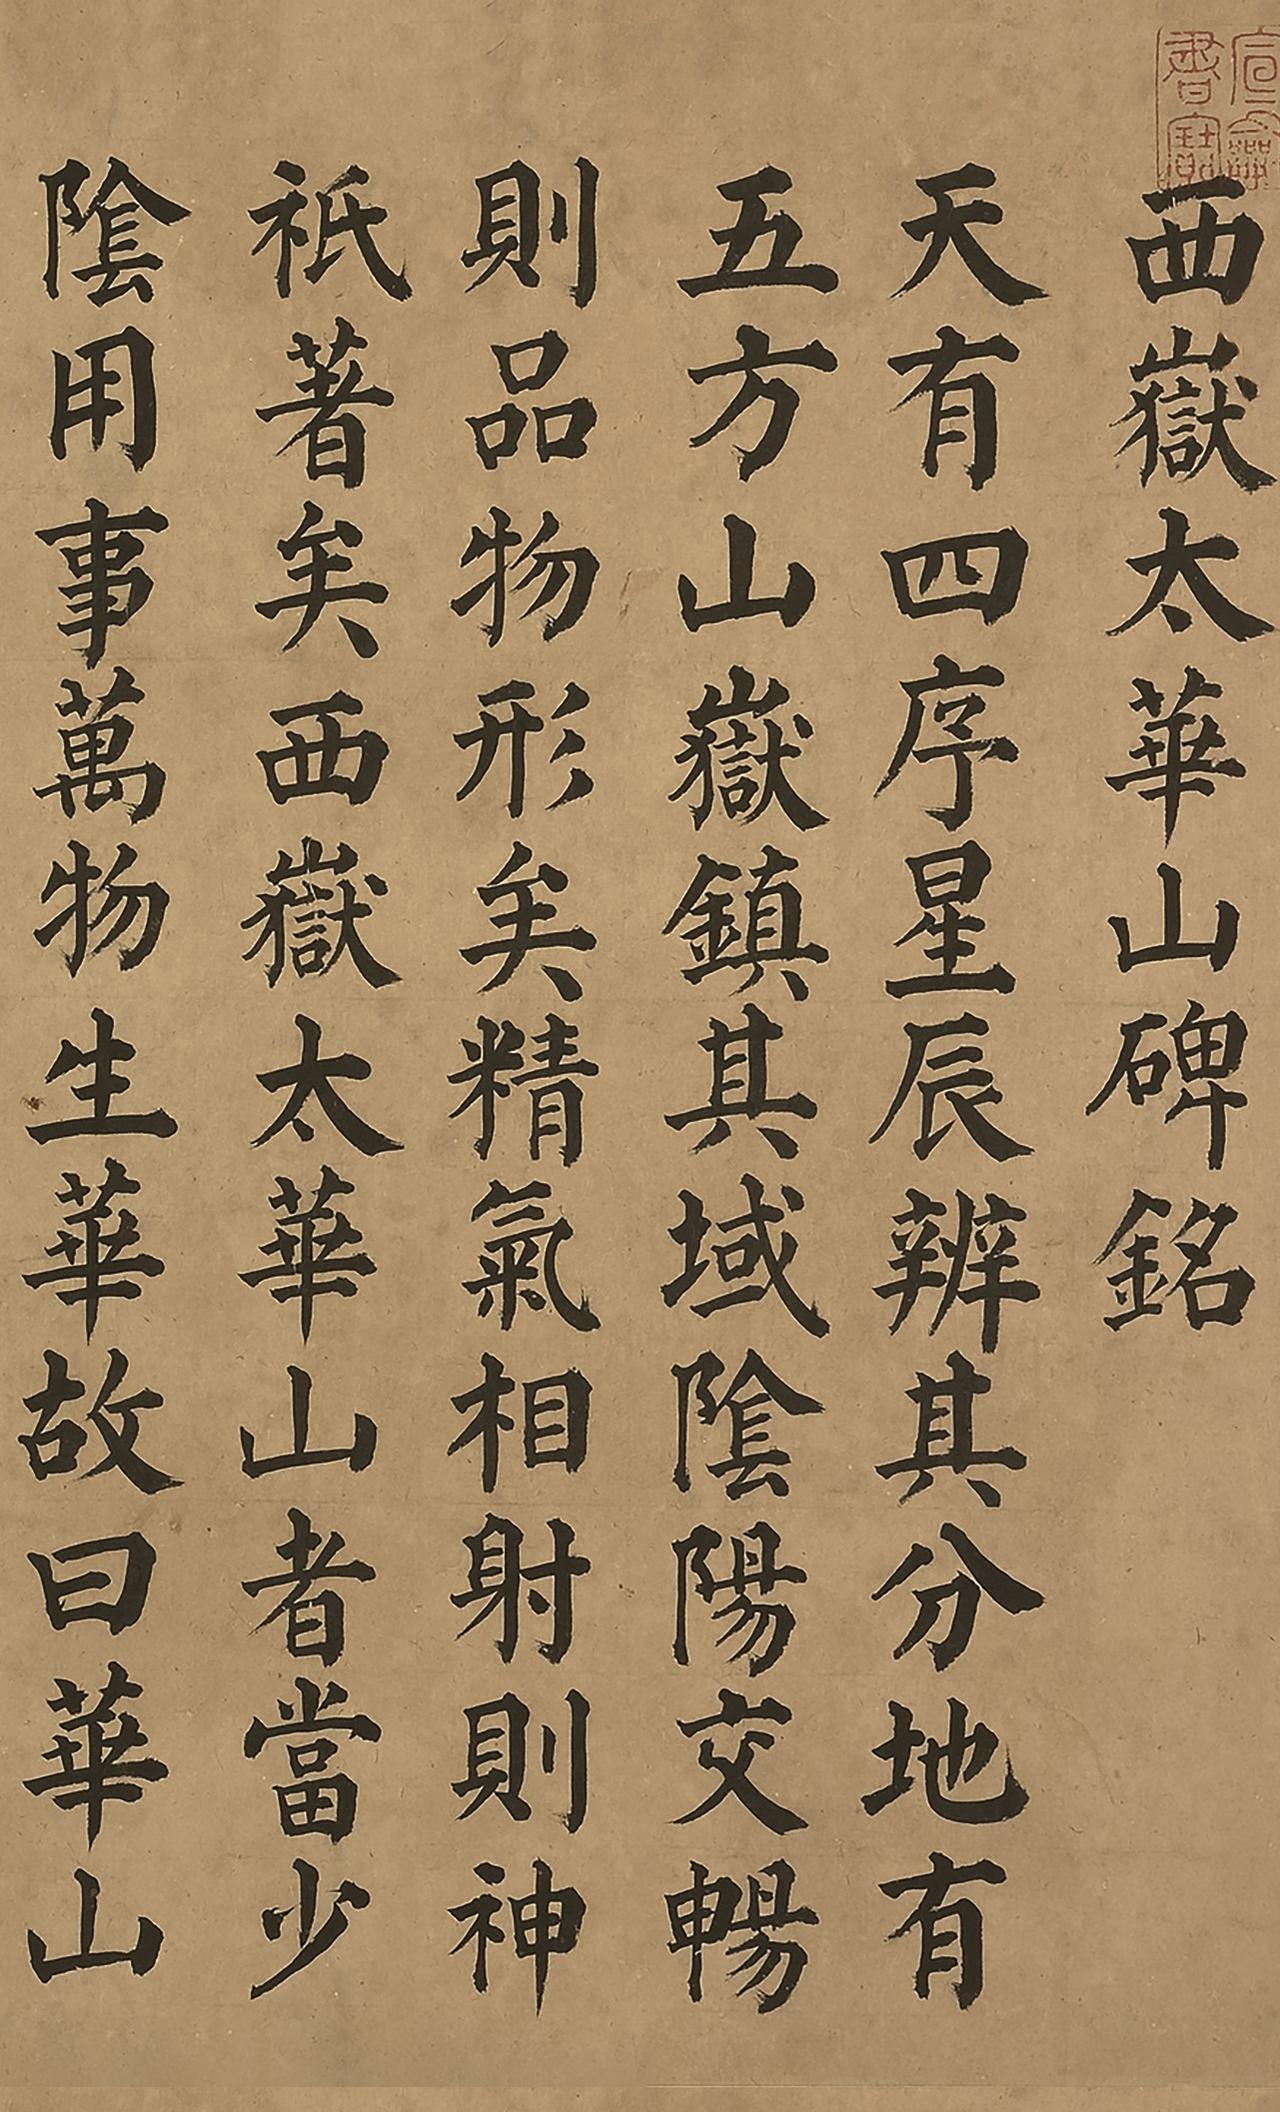 宣龢書寶
西嶽太華山碑銘
天有四序星辰辨其分地有
五方山嶽鎮其域陰陽交暢
則品物形矣精氣相射則神
祇著矣西嶽太華山者當少
陰用事萬物生華故曰華山